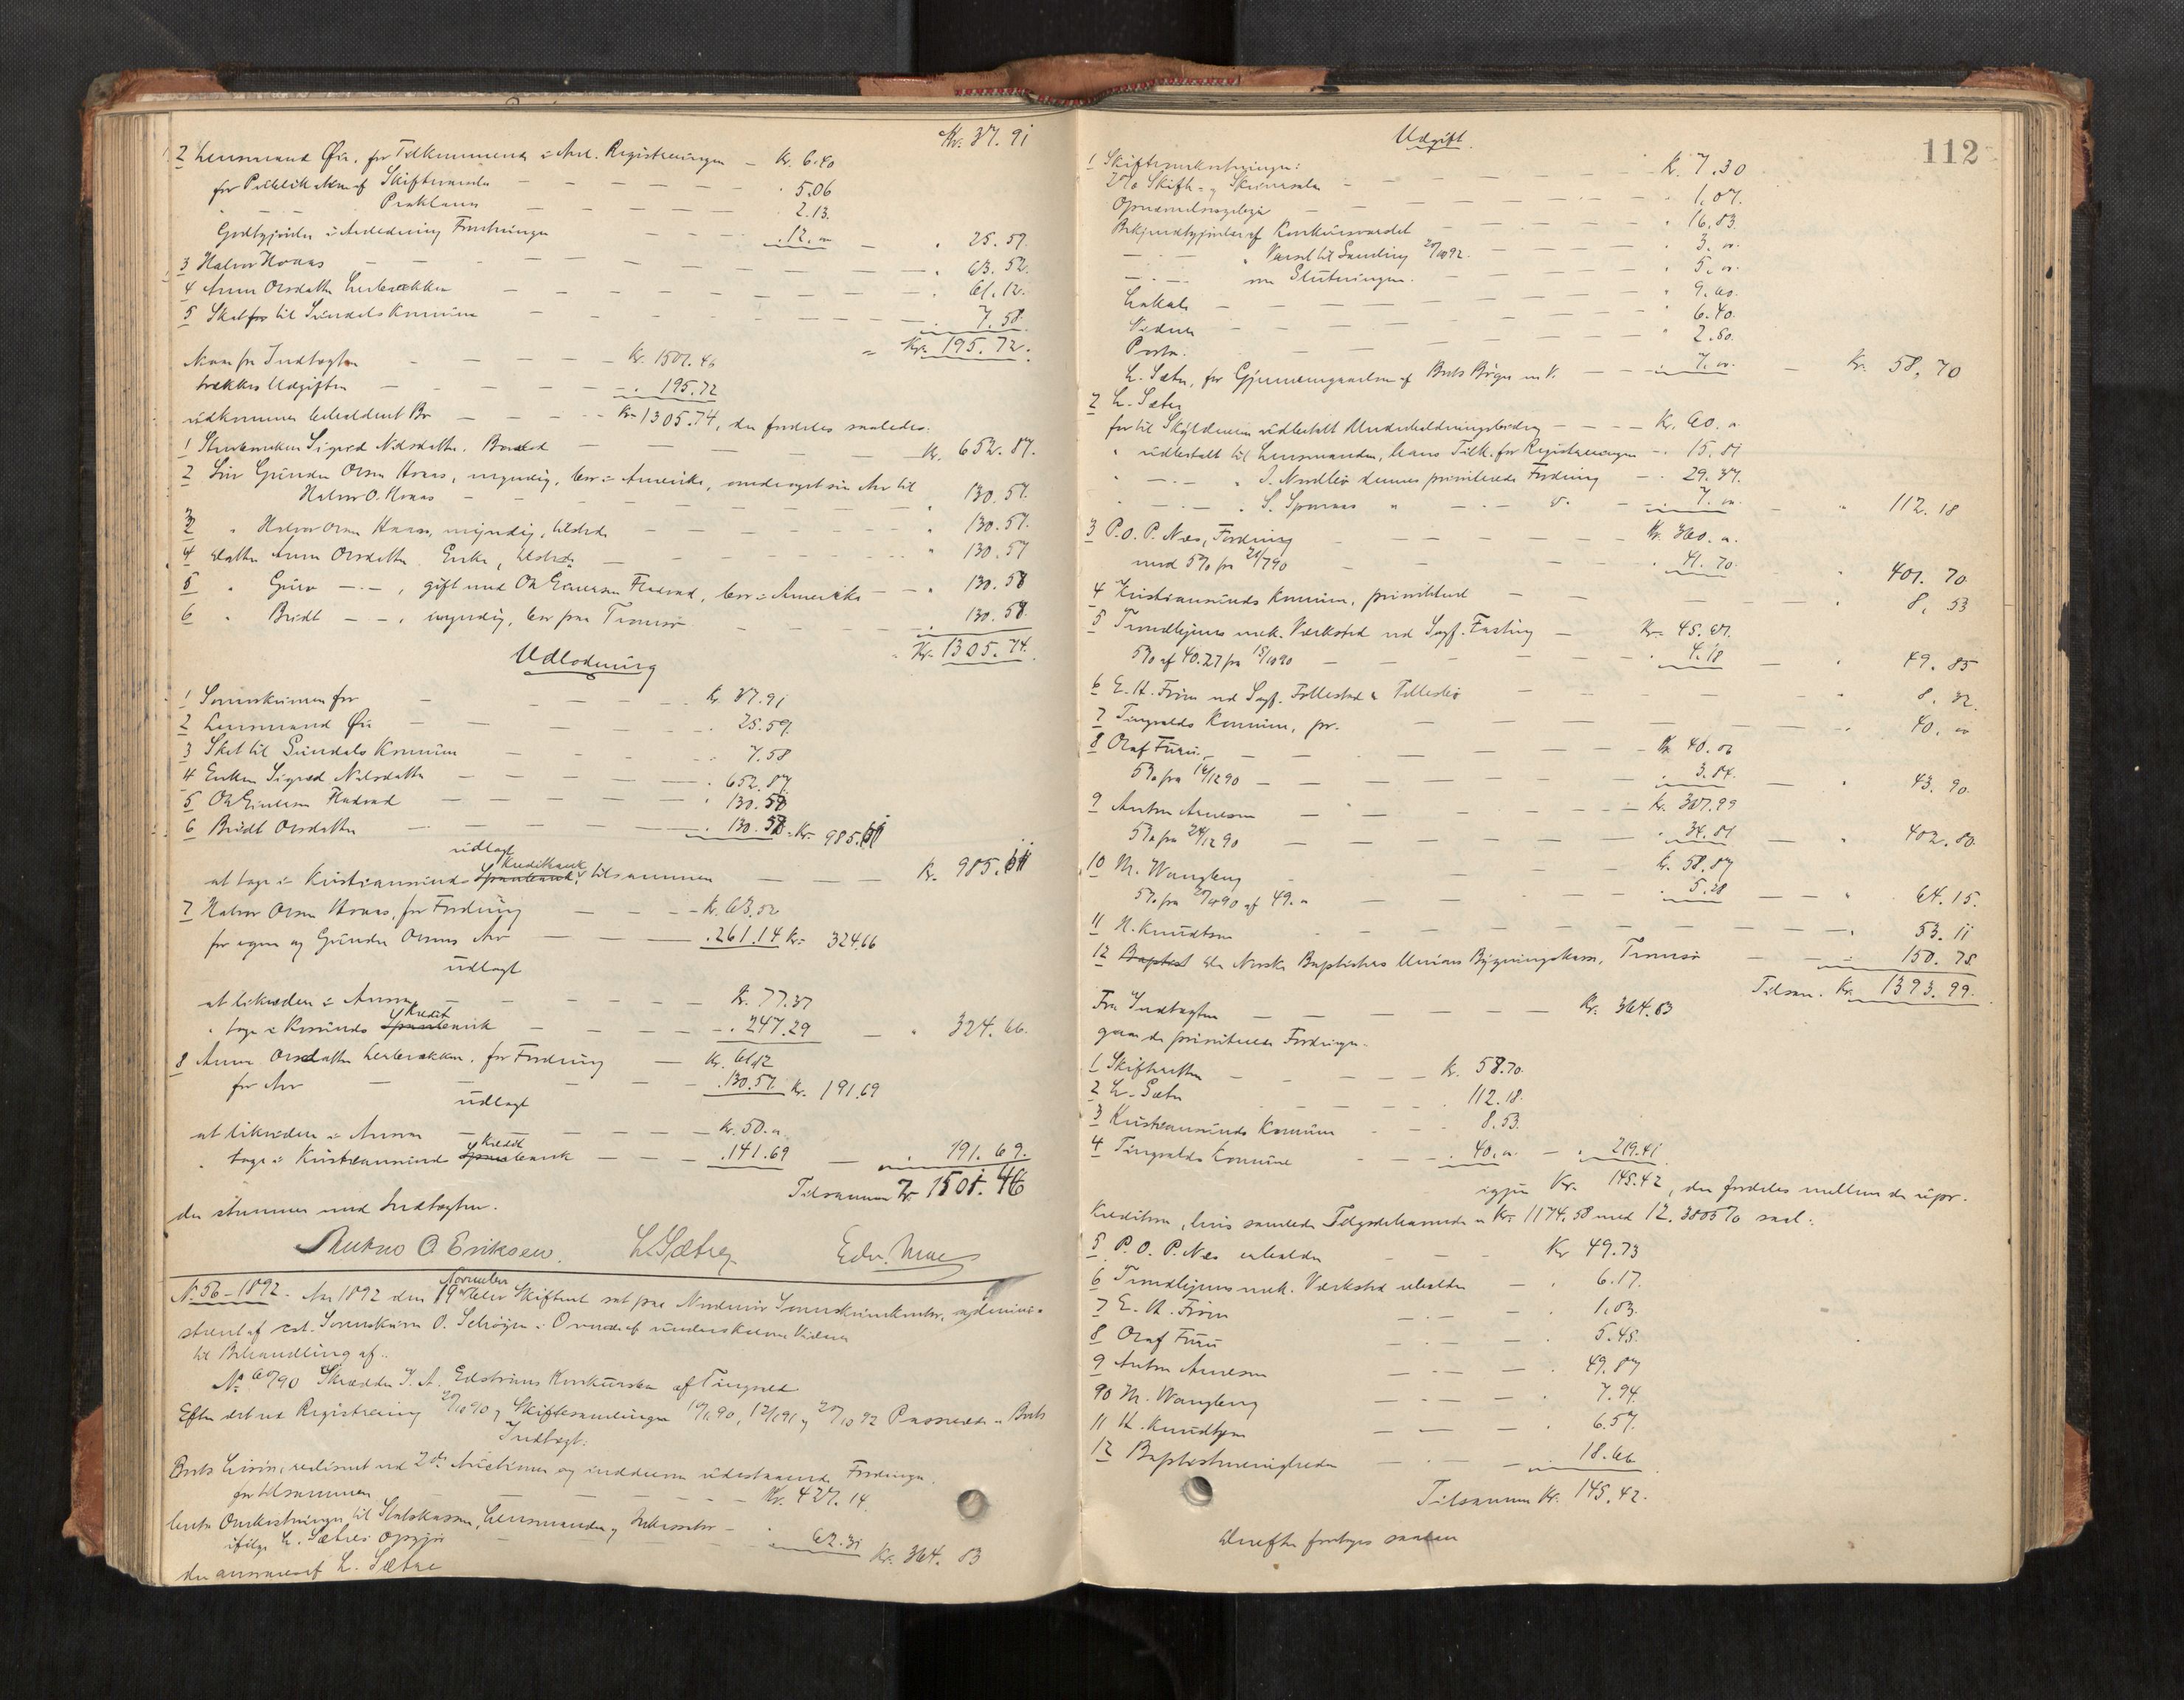 Kr. 37.91
2 Lensmand Øie for Tilkommende i Anl. Registreringen — Kr. 6.40
for Publikation af Skiftesamlin — 5.06
Proklama — 2.13.
Godtgjørelse i Anledning Forretningen — 12.00 — 25.59.
3 Halvor Hoaas — 63.52.
4 Anne Orsdatter — 61.12.
5 Skat til Sundals Kommune — 7.58.
= Kr. 195.72.
Naar fra Indtægten — Kr. 1501.46
trækkes Udgiften — 195.72
udkommer beholdent Bo — Kr. 1305.74, der fordeles saaledes:
1 Sigrid Nilsdatter, Boslod — Kr. 652.87.
2 Søn Gunder Orsen Hoaas, myndig, bor i Amerika, overdraget sin Arv til
Halvor O. Hoaas — 130.57.
3 " Halvor Orsen Hoaas, myndig, tilstede — 130.57.
4 Datter Anne Orsdatter Enke, tilstede — 130.57
5 " Guro —.—, gift med Ole Einersen Fladvad, bor i Amerika — 130.58
6 " Bridt — —, myndig, bor paa Tromsø — 130.58
Kr. 1305.74.
Udlodning
1 Sorenskriveren for — Kr. 37.91
2 Lensmand Øie — 25.59.
3 Skat til Sundals Kommune — 7.58
4 Enken Sigrid Nilsdatter — 652.87.
5 Ole Einersen Fladvad — 130.58
6 Bridt Orsdatter — 130.58 Kr. 985.11
udlagt
Kreditbank
at tage i Kristiansunds Sparebank, tilsammen — Kr. 985.11
7 Halvor Orsen Hoaas, for Fordring — Kr. 63.52
for egen og Gunder Orsens Arv — 261.14 Kr. 324.66
udlagt
at likvidere i Ansvar — Kr. 77.37
Kredit
" tage i Krsunds Sparebank — 247.29 — 324.66.
8 Anne Orsdatter, for Fordring — Kr. 61.12
for Arv — 130.57. Kr. 191.69
udlagt
at likvidere i Ansvar — Kr. 50.00
Kredit
" tage i Kristiansunds Sparebank — 141.69 — 191.69.
Tilsammen Kr 1501.46
der stemmer med Indtægten.
O. Eriksen. L. Sætre Edv. Moe
November
N. 56 – 1892. Aar 1892 den 19de blev Skifteret sat paa Nordmør Sorenskriverkontor, admini-
streret af cst. Sorenskriver O. Schrøger i Overvær af underskrevne Vidner
til Behandling af:
No 6/1790 Skrædder J. A. Edstrøms Konkursbo af Tingvold
Efter det ved Registrering og Skiftesamlinger Passerede er Boets
Indtægt:
Boets Løsøre, realiseret ved 2de Auktioner og inddrevne udestaaende Fordringer
for tilsammen — Kr. 427.14.
Omkostninger til Statskassen, Lensmanden og Inkassator —
ifølge L. Sætres Opgjør — 62.31 Kr. 364.83
der ansvares af L. Sætre
112
Udgift.
1 Skifteomkostninger:
2% Skifte- og — Kr. 7.30
Opnævnelsesgebyr — 1.07.
Bekjendtgjørelse af Konkursvarslet — 16.83.
—.— " Varsel til Samling 20/10 92. — 3.00.
—.— om Slutningen. — 5.00.
Lokale — 9.60.
Vidner — 6.40.
Porto. — 2.50.
L. Sæter, for Gjennemgaaelsen af Boets Bøger m.V. — 7.00 — Kr. 58.70
2 L. Sæter
for til Skyldneren udbetalt Underholdningsbidrag — Kr. 60.00
" udbetalt til Lensmanden, hans Tilk. for Registreringen — 15.81
" —.— " J. Nordlie dennes privilegerede Fordring — 29.37.
" —.— " S. " —.— 7.00 — 112.18
3 P.O. P. Næs, Fordring — Kr. 360.00.
med 5% fra 21/7 90 — 41.70 — 401.70
4 Kristiansunds Kommune, privilegeret — 8.53
5 Trondhjems mek. Værksted ved Sagf. Fasting — Kr. 45.67.
5% af 40.27 fra 15/10 90 — 4.18 — 49.85
6 E. A. Firm ved Sagf. Follestad — 8.32.
7 Tingvolds Kommune, pr. — 40.00
8 Olaf Furu. — Kr. 40.06
5% fra 14/12 90 — 3.84. — 43.90.
9 Anton Arnesen — Kr. 367.99
5% fra 24/12 90 — 34.81 — 402.80.
10 M. Wangberg — Kr. 58.87
5% fra 90 af 49.00 — 5.28 — 64.15.
11 N. Knudtzon — 53.11
12 Baptist Den Norske Baptisters Unions Bygningskasse, Tromsø — 150.75.
Tilsam. Kr. 1393.99.
Fra Indtægten — Kr. 364.83
gaar de privilegerede Fordringer.
1 Skifteretten — Kr. 58.70.
2 L. Sæter — 112.18.
3 Kristiansunds Kommune — 8.53.
4 Tingvolds Kommune — 40.00 — 219.41
igjen Kr. 145.42, der fordeles mellem de upr.
Kreditorer, hvis samlede Tilgodehavende er Kr. 1174.58 med 12.3805% saal.:
5 P. O. P. Næs erholder — Kr 49.73
6 Trondhjems mek. Værksted erholder — 6.17.
7 E. A. Firm — 1.03.
8 Olaf Furu — 5.45.
9 Anton Arnesen — 49.87
10 M. Wangberg — 7.94.
11 N. Knudtzon — 6.57.
12 Baptistmenigheden — 18.66
Tilsammen Kr. 145.42.
Derefter foretoges saadan